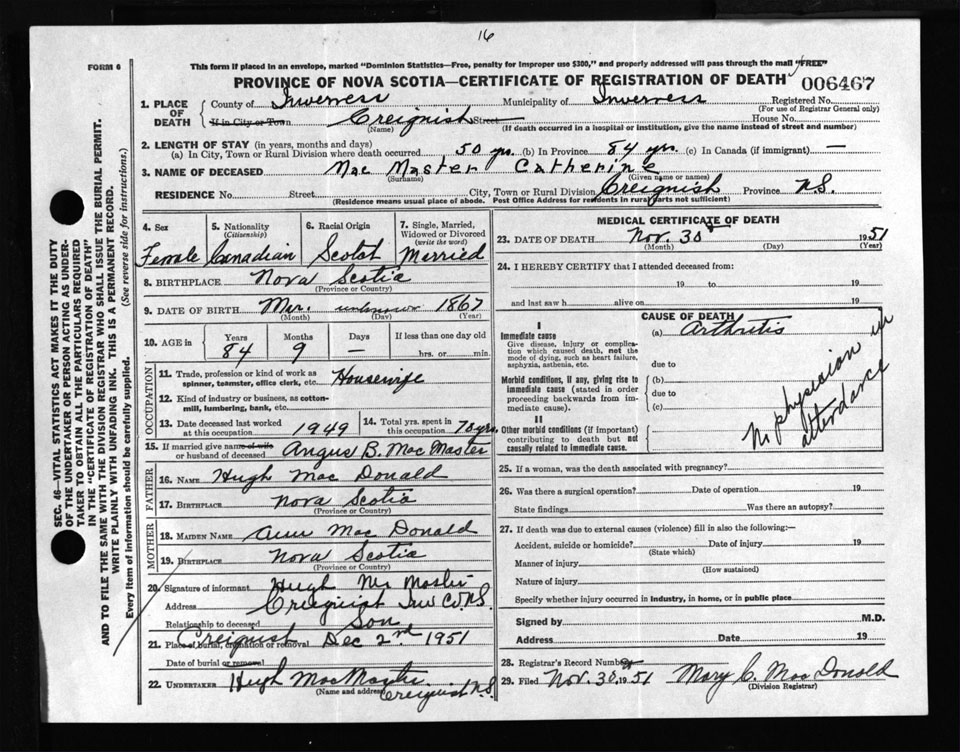 16
FORM 6
This form if placed in an envelope, marked "Dominion Statistics—Free, penalty for improper use $300," and properly addressed will pass through the mail "FREE"
PROVINCE OF NOVA SCOTIA—CERTIFICATE OF REGISTRATION OF DEATH
006467
1. PLACE OF DEATH
County of Inverness Municipality of Inverness Registered No.
(For use of Registrar General only)
If in City or Town Creignish Street House No.
(Name) (If death occurred in a hospital or institution, give the name instead of street and number)
2. LENGTH OF STAY (in years, months and days)
(a) In City, Town or Rural Division where death occurred 50 yrs. (b) In Province 84 yrs. (c) In Canada (if immigrant) —
3. NAME OF DECEASED Mac Master Catherine
(Surname) (Given name or names)
RESIDENCE No. Street City, Town or Rural Division Creignish Province N.S.
(Residence means usual place of abode. Post Office Address for residents in rural parts not sufficient)
4. Sex
Female
5. Nationality
(Citizenship)
Canadian
6. Racial Origin
Scotch
7. Single, Married, Widowed or Divorced
(write the word)
Married
8. BIRTHPLACE Nova Scotia
(Province or Country)
9. DATE OF BIRTH Mar. unknown 1867
(Month) (Day) (Year)
10. AGE in Years Months Days If less than one day old
84 9 — hrs. or min.
OCCUPATION
11. Trade, profession or kind of work as spinner, teamster, office clerk, etc. Housewife
12. Kind of industry or business, as cotton-mill, lumbering, bank, etc.
13. Date deceased last worked at this occupation 1949
14. Total yrs. spent in this occupation 70 yrs.
15. If married give name of wife or husband of deceased Angus B. MacMaster
FATHER
16. NAME Hugh Mac Donald
17. BIRTHPLACE Nova Scotia
(Province or Country)
MOTHER
18. MAIDEN NAME Ann Mac Donald
19. BIRTHPLACE Nova Scotia
(Province or Country)
20. Signature of informant Hugh Mac Master
Address Creignish Inv Co. N.S.
Relationship to deceased Son
21. Place of burial, cremation or removal Creignish Dec 2nd 1951
Date of burial or removal
22. UNDERTAKER Hugh MacMaster
(Name and address) Creignish N.S.
MEDICAL CERTIFICATE OF DEATH
23. DATE OF DEATH Nov. 30 1951
(Month) (Day) (Year)
24. I HEREBY CERTIFY that I attended deceased from:
19 to 19
and last saw h alive on 19
CAUSE OF DEATH
I
Immediate cause
Give disease, injury or complication which caused death, not the mode of dying, such as heart failure, asphyxia, asthenia, etc.
(a) Arthritis
due to
Morbid conditions, if any, giving rise to immediate cause (stated in order proceeding backwards from immediate cause).
(b)
due to
(c)
II
Other morbid conditions (if important) contributing to death but not causally related to immediate cause.
No physician in attendance
25. If a woman, was the death associated with pregnancy?
26. Was there a surgical operation? Date of operation 19
State findings Was there an autopsy?
27. If death was due to external causes (violence) fill in also the following:—
Accident, suicide or homicide? Date of injury 19
(State which)
Manner of injury
(How sustained)
Nature of injury
Specify whether injury occurred in industry, in home, or in public place
Signed by M.D.
Address Date 19
28. Registrar's Record Number
29. Filed Nov. 30, 1951 Mary C. Mac Donald
(Division Registrar)
SEC. 46—VITAL STATISTICS ACT MAKES IT THE DUTY
OF THE UNDERTAKER OR PERSON ACTING AS UNDER-
TAKER TO OBTAIN ALL THE PARTICULARS REQUIRED
IN THE "CERTIFICATE OF REGISTRATION OF DEATH"
AND TO FILE THE SAME WITH THE DIVISION REGISTRAR WHO SHALL ISSUE THE BURIAL PERMIT.
WRITE PLAINLY WITH UNFADING INK. THIS IS A PERMANENT RECORD.
Every item of information should be carefully supplied. (See reverse side for instructions.)